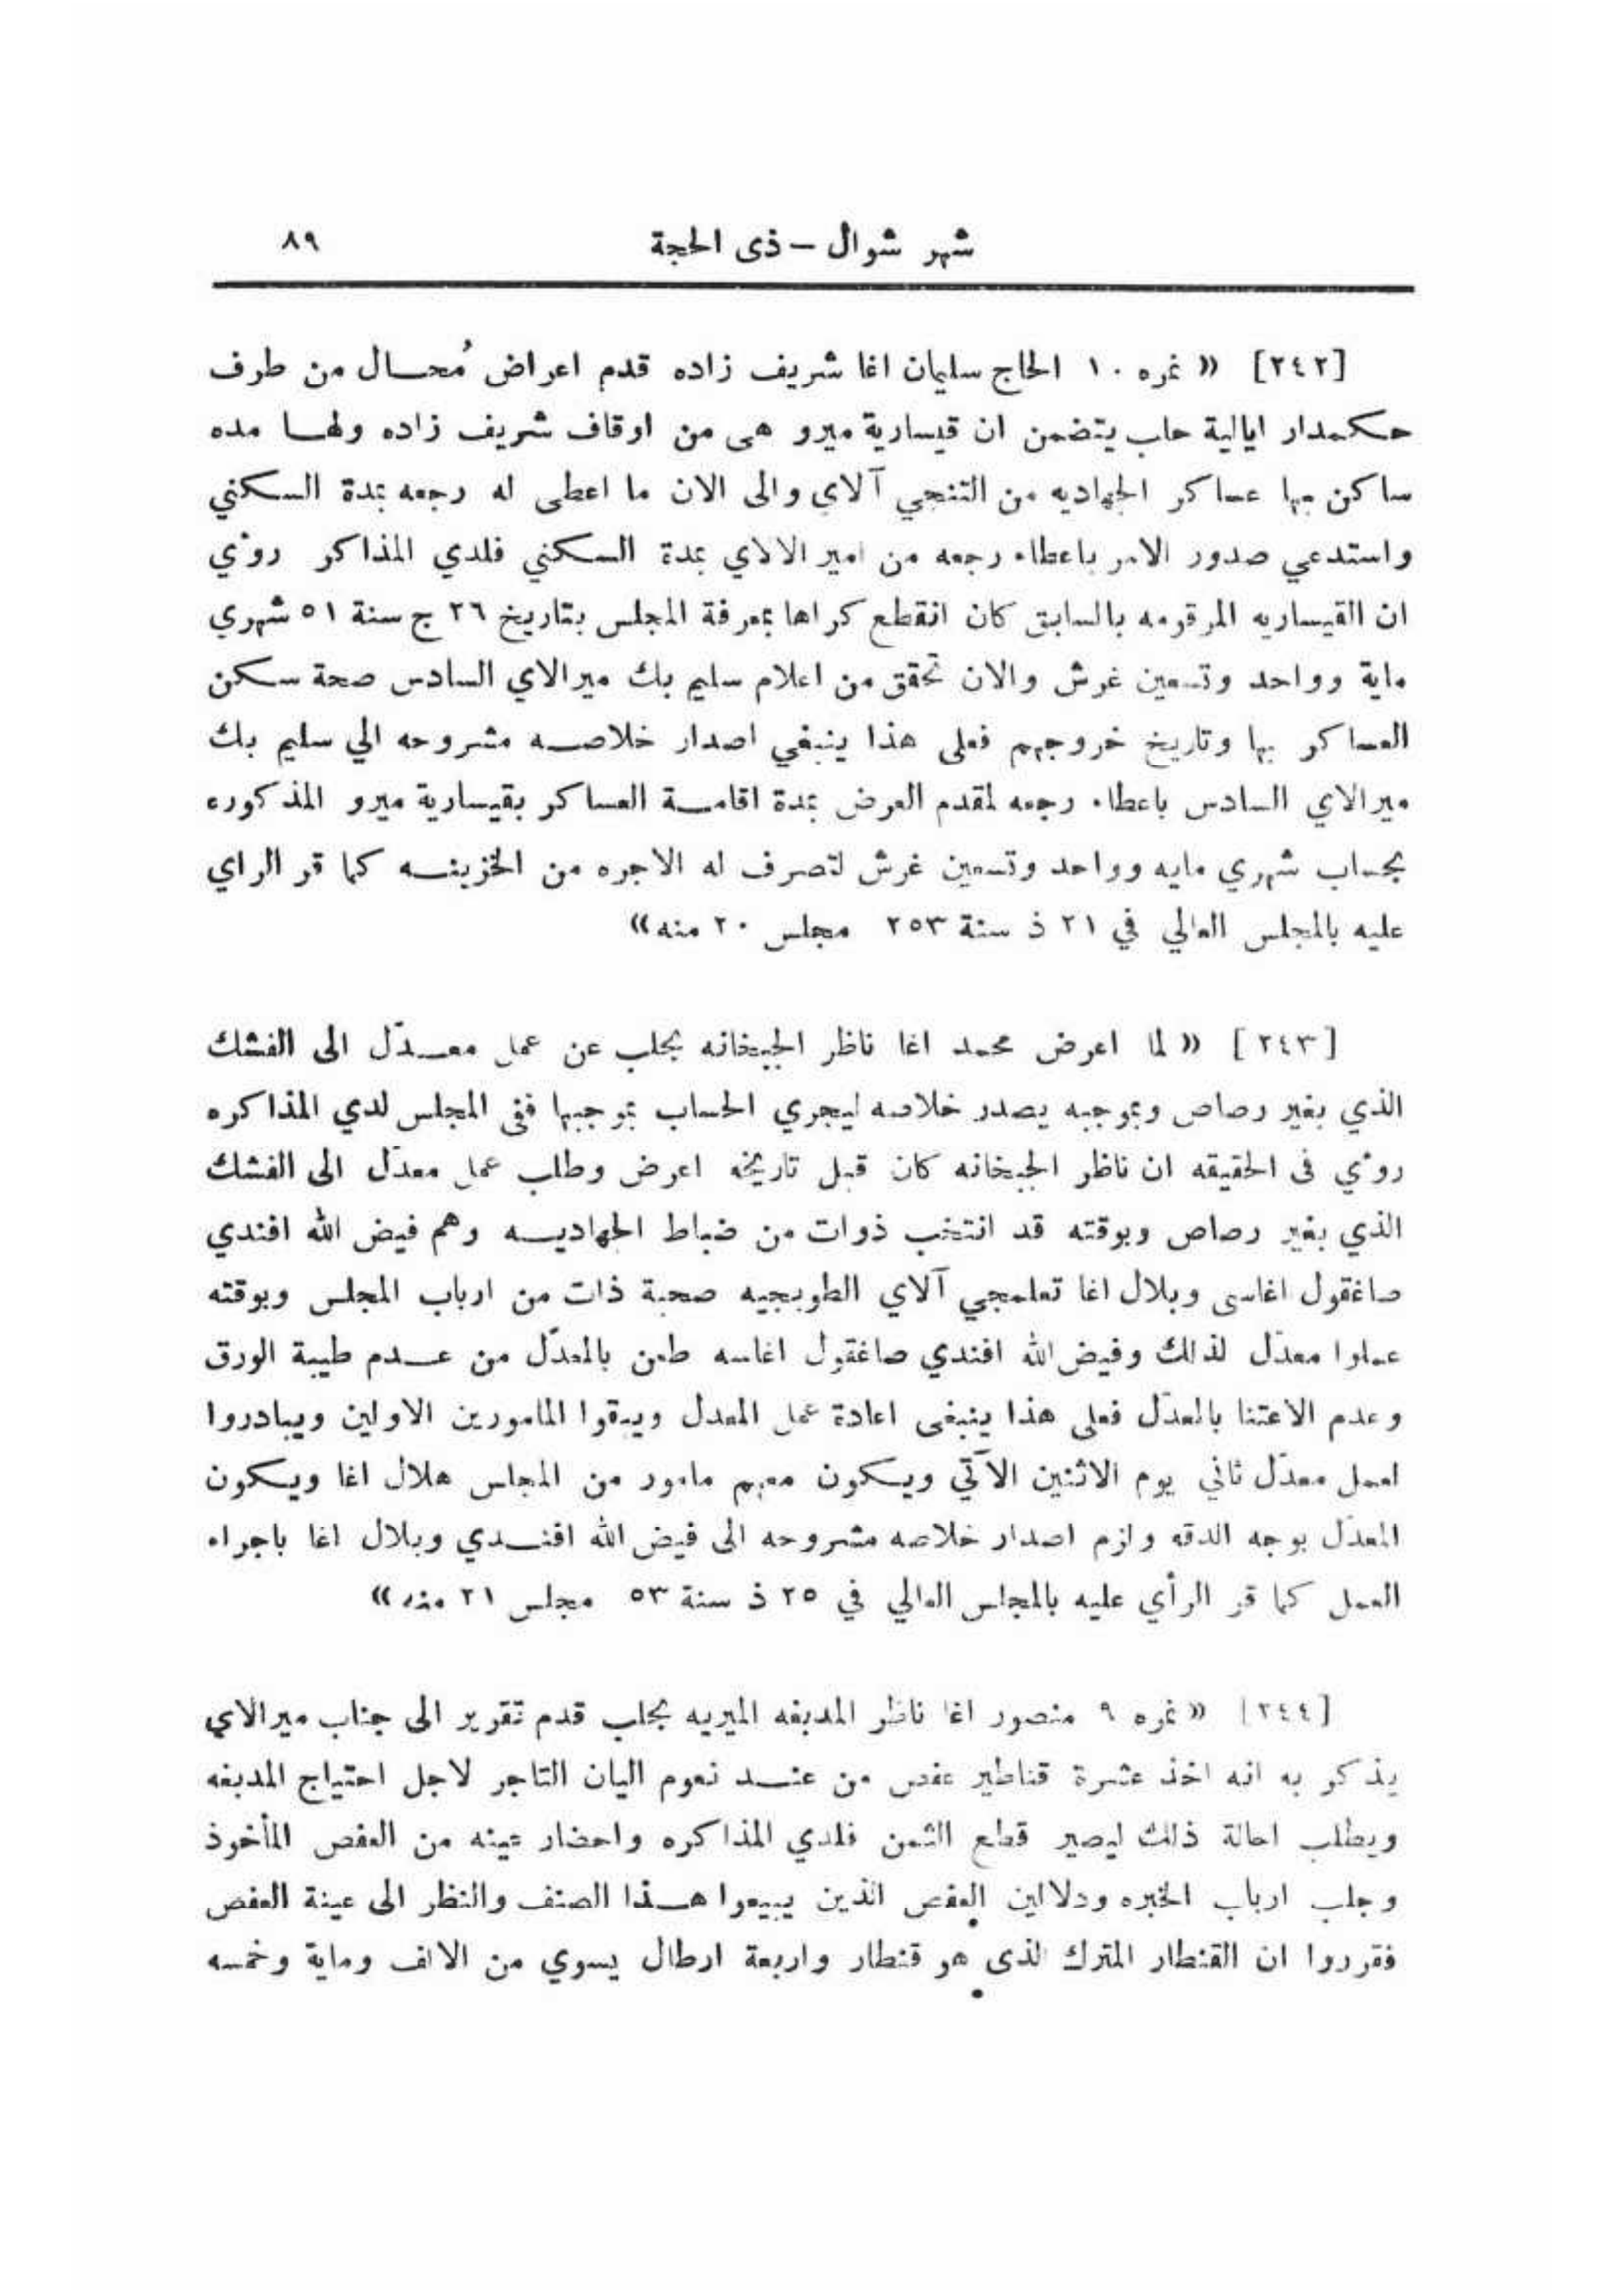 شهر شوال — ذى الحجة ٨٩
[٢٤٢] « نمره ١٠ الحاج سليمان اغا شريف زاده قدم اعراض مُحـال من طرف
حكمدار ايالية حلب يتضمن ان قيسارية ميرو هى من اوقاف شريف زاده ولها مده
ساكن بها عساكر الجهاديه من التنجي آلاي والى الان ما اعطى له رجعه بمدة السكني
واستدعي صدور الامر باعطاء رجعه من امير الالاي بمدة السكني فلدي المذاكر رؤي
ان القيساريه المرقومه بالسابق كان انقطع كراها بمعرفة المجلس بتاريخ ٢٦ ج سنة ٥١ شهري
ماية وواحد وتسعين غرش والان تحقق من اعلام سليم بك ميرالاي السادس صحة سكن
العساكر بها وتاريخ خروجهم فعلى هذا ينبغي اصدار خلاصه مشروحه الي سليم بك
ميرالاي السادس باعطاء رجعه لمقدم العرض بمدة اقامة العساكر بقيسارية ميرو المذكوره
بحساب شهري مايه وواحد وتسعين غرش لتصرف له الاجره من الخزينه كما قر الراي
عليه بالمجلس العالي في ٢١ ذ سنة ٢٥٣ مجلس ٢٠ منه»
[٢٤٣] « لما اعرض محمد اغا ناظر الجبخانه بحلب عن عمل معدّل الى الفشك
الذي بغير رصاص وبموجبه يصدر خلاصه ليجري الحساب بموجبها ففى المجلس لدي المذاكره
رؤي فى الحقيقه ان ناظر الجبخانه كان قبل تاريخه اعرض وطلب عمل معدّل الى الفشك
الذي بغير رصاص وبوقته قد انتخب ذوات من ضباط الجهاديه وهم فيض الله افندي
صاغقول اغاسى وبلال اغا تعلمجي آلاي الطوبجيه صحبة ذات من ارباب المجلس وبوقته
عملوا معدّل لذلك وفيض الله افندي صاغقول اغاسه طعن بالمعدّل من عدم طيبة الورق
وعدم الاعتنا بالمعدّل فعلى هذا ينبغى اعادة عمل المعدل ويبقوا المامورين الاولين ويبادروا
لعمل معدّل ثاني يوم الاثنين الآتي ويكون معهم مامور من المجلس هلال اغا ويكون
المعدّل بوجه الدقه ولزم اصدار خلاصه مشروحه الى فيض الله افندي وبلال اغا باجراء
العمل كما قر الرأي عليه بالمجلس العالي في ٢٥ ذ سنة ٥٣ مجلس ٢١ منه»
[٢٤٤] « نمره ٩ منصور اغا ناظر المدبغه الميريه بحلب قدم تقرير الى جناب ميرالاي
يذكر به انه اخذ عشرة قناطير عفص من عند نعوم اليان التاجر لاجل احتياج المدبغه
ويطلب احالة ذلك ليصير قطع الثمن فلدي المذاكره واحضار عينه من العفص المأخوذ
وجلب ارباب الخبره ودلالين العفص الذين يبيعوا هذا الصنف والنظر الى عينة العفص
فقرروا ان القنطار المترك الذى هو قنطار واربعة ارطال يسوي من الالف وماية وخمسه